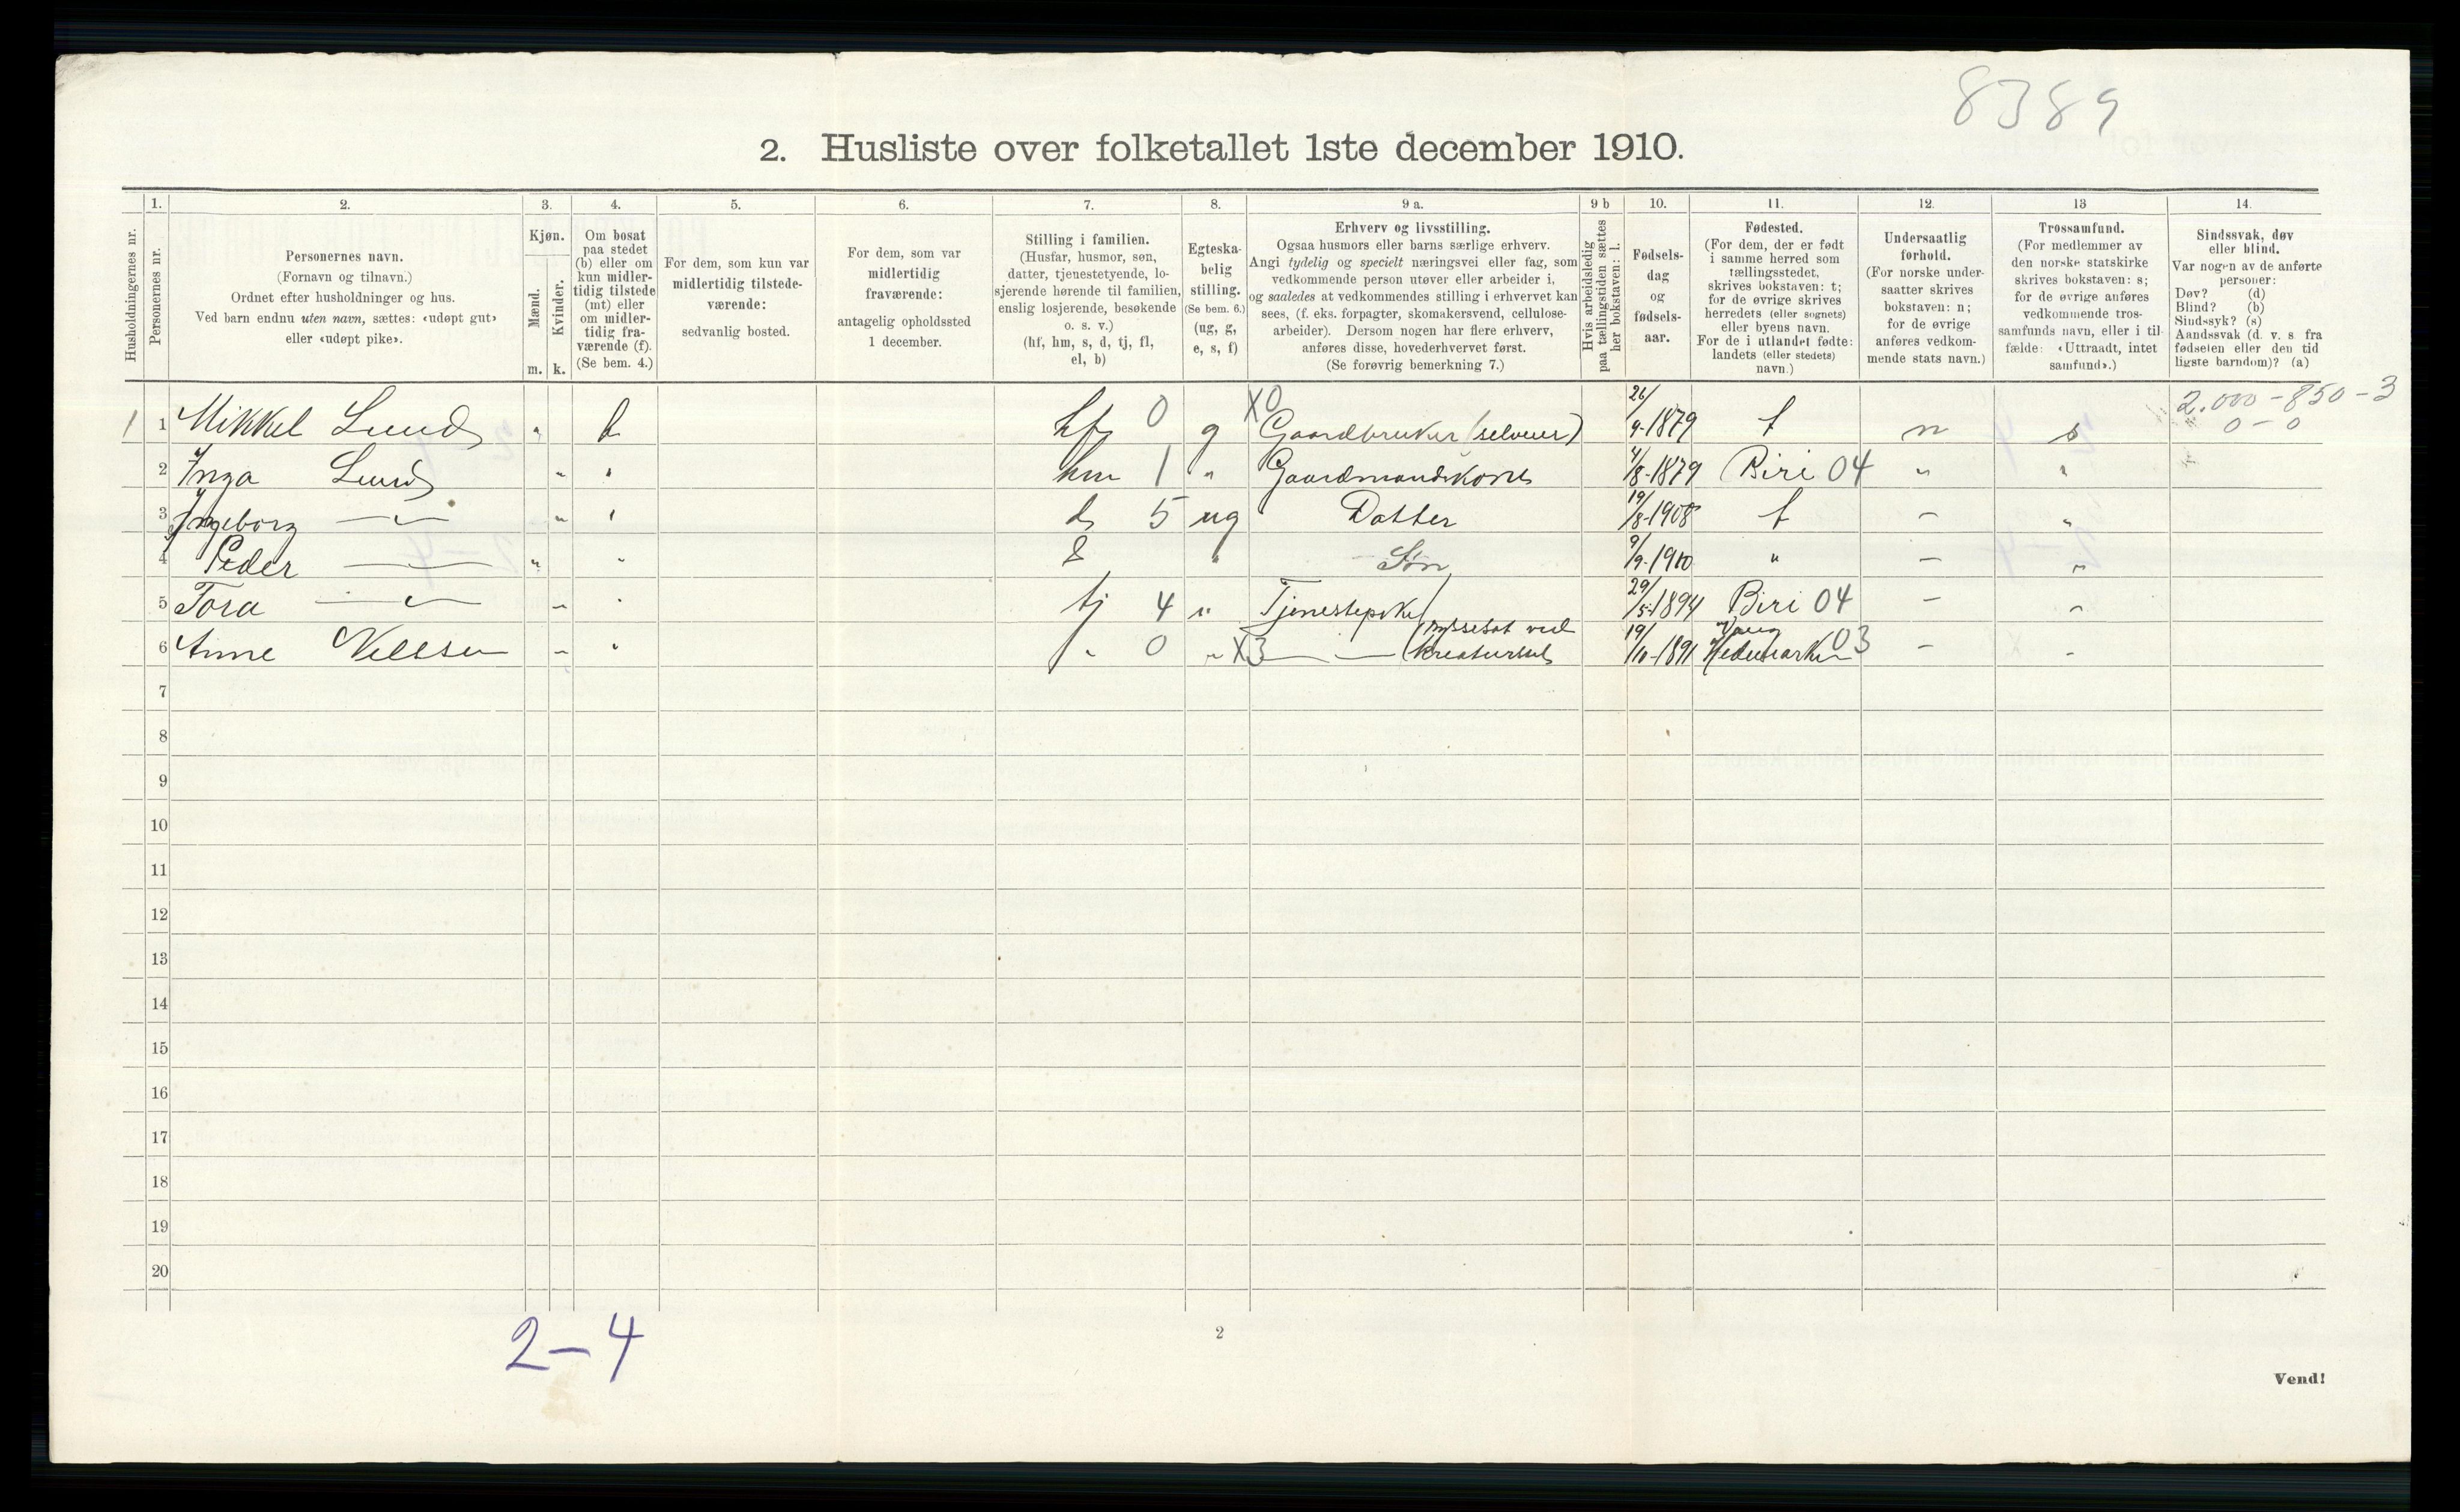 8389
2. Husliste over folketallet 1ste december 1910.
Husholdningernes nr.
1. Personernes nr.
2. Personernes navn.
(Fornavn og tilnavn.)
Ordnet efter husholdninger og hus.
Ved barn endnu uten navn, sættes: «udøpt gut»
eller «udøpt pike».
3. Kjøn.
Mænd. Kvinder.
m. k.
4. Om bosat
paa stedet
(b) eller om
kun midler-
tidig tilstede
(mt) eller
om midler-
tidig fra-
værende (f).
(Se bem. 4.)
5. For dem, som kun var
midlertidig tilstede-
værende:
sedvanlig bosted.
6. For dem, som var
midlertidig
fraværende:
antagelig opholdssted
1 december.
7. Stilling i familien.
(Husfar, husmor, søn,
datter, tjenestetyende, lo-
sjerende hørende til familien,
enslig losjerende, besøkende
o. s. v.)
(hf, hm, s, d, tj, fl,
el, b)
8. Egteska-
belig
stilling.
(Se bem. 6.)
(ug, g,
e, s, f)
9 a. Erhverv og livsstilling.
Ogsaa husmors eller barns særlige erhverv.
Angi tydelig og specielt næringsvei eller fag, som
vedkommende person utøver eller arbeider i,
og saaledes at vedkommendes stilling i erhvervet kan
sees, (f. eks. forpagter, skomakersvend, cellulose-
arbeider). Dersom nogen har flere erhverv,
anføres disse, hovederhvervet først.
(Se forøvrig bemerkning 7.)
9 b Hvis arbeidsledig
paa tællingstiden sættes
her bokstaven: l.
10. Fødsels-
dag
og
fødsels-
aar.
11. Fødested.
(For dem, der er født
i samme herred som
tællingsstedet,
skrives bokstaven: t;
for de øvrige skrives
herredets (eller sognets)
eller byens navn.
For de i utlandet fødte:
landets (eller stedets)
navn.)
12. Undersaatlig
forhold.
(For norske under-
saatter skrives
bokstaven: n;
for de øvrige
anføres vedkom-
mende stats navn.)
13 Trossamfund.
(For medlemmer av
den norske statskirke
skrives bokstaven: s;
for de øvrige anføres
vedkommende tros-
samfunds navn, eller i til-
fælde: «Uttraadt, intet
samfund».)
14. Sindssvak, døv
eller blind.
Var nogen av de anførte
personer:
Døv? (d)
Blind? (b)
Sindssyk? (s)
Aandssvak (d. v. s fra
fødselen eller den tid
ligste barndom)? (a)
2.000-850-3
0-0
1 1 Mikkel Lund " b hf 0 g X0 Gaardbruker (selveier) 26/9-1879 t n s
2 Inga Lund " " hm 1 " Gaardmandskone 4/8-1879 Biri 04 " "
3 Ingeborg — " — " " d 5 ug Datter 19/8-1908 t - "
4 Peder — " — " " s " Søn 9/9-1910 " - "
5 Tora — " — " " tj 4 " Tjenestepike 29/5-1894 Biri 04 - "
6 Anne Nilssen " " " 0 " X3 — " — (sysselsat ved
kreaturstel) 19/10-1891 Vang
Hedemarken 03 - "
7
8
9
10
11
12
13
14
15
16
17
18
19
20
2-4
2
Vend!